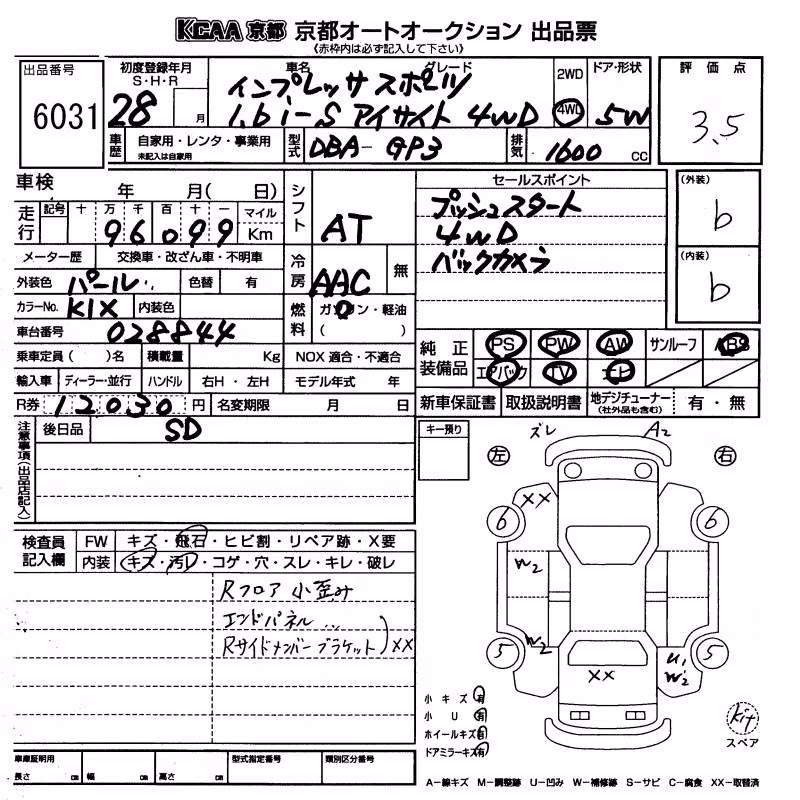 KCAA 京都 京都オートオークション 出品票
《赤枠内は必ず記入して下さい》
出品番号 6031
初度登録年月 S・H・R 28 月
車名 グレード
インプレッサスポーツ
1.6i-S アイサイト 4WD
2WD 4WD
ドア・形状 5W
評価点 3.5
車歴 自家用・レンタ・事業用 未記入は自家用
型式 DBA-GP3
排気 1600 CC
車検 年 月( 日)
走行 記号 十 万 千 百 十 一 マイル Km
96099
メーター歴 交換車・改ざん車・不明車
外装色 パール 色替 有
カラーNo. K1X 内装色
車台番号 028844
乗車定員( )名 積載量 Kg
NOX 適合・不適合
輸入車 ディーラー・並行 ハンドル 右H・左H モデル年式 年
R券 12030 円 名変期限 月 日
シフト AT
冷房 AAC 無
燃料 ガソリン・軽油 ( )
セールスポイント
プッシュスタート
4WD
バックカメラ
(外装) b
(内装) b
純正装備品 PS PW AW サンルーフ ABS
エアバック TV ナビ
新車保証書 取扱説明書 地デジチューナー (社外品も含む) 有・無
注意事項(出品店記入) 後日品 SD
キー預り
検査員記入欄 FW キズ・飛石・ヒビ割・リペア跡・X要
内装 キズ・汚レ・コゲ・穴・スレ・キレ・破レ
Rフロア 小歪み
エンドパネル
Rサイドメンバーブラケット XX
ズレ A2
左 右
XX
6 6
W2
W2
5 5
XX
U1
W2
小キズ有
小U有
ホイールキズ有
ドアミラーキズ有
kit
スペア
車庫証明用 長さ cm 幅 cm 高さ cm
型式指定番号 類別区分番号
A−線キズ M−調整跡 U−凹み W−補修跡 S−サビ C−腐食 XX−取替済